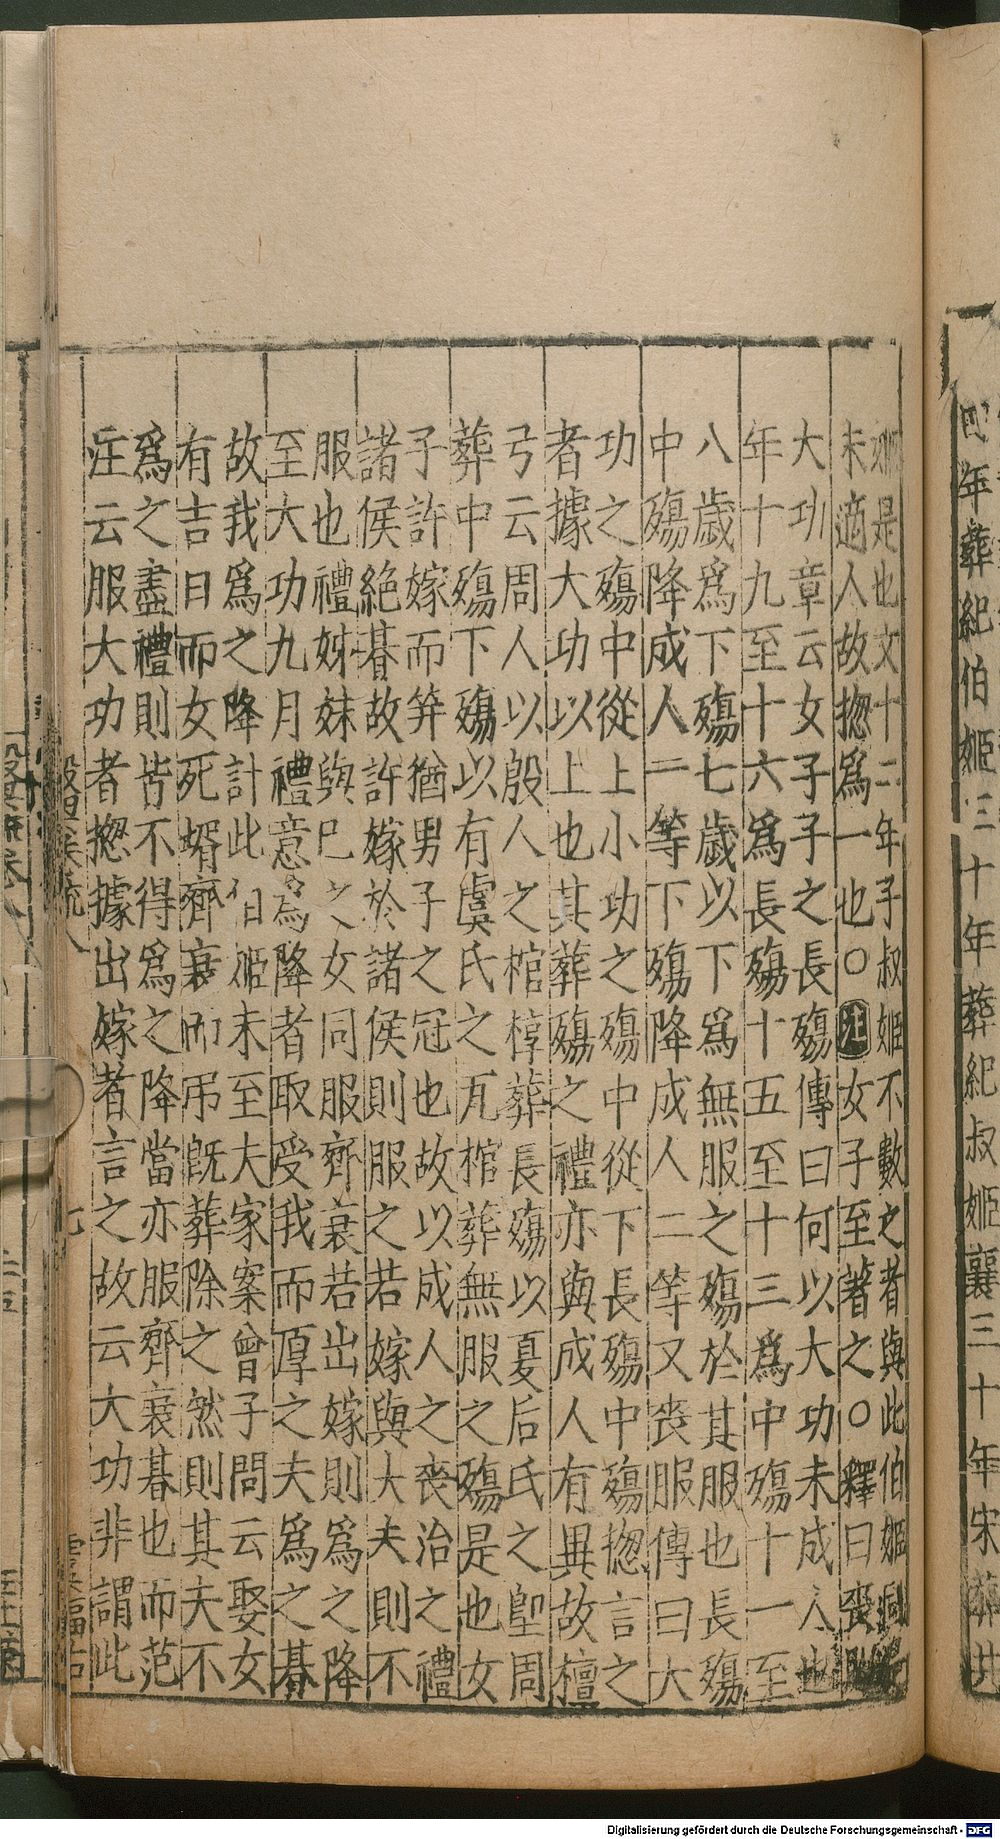 姬是也文十二年子叔姬不數之者與此伯姬同
未適人故揔爲一也〇注女子至著之〇釋曰喪服
大功章云女子子之長殤傳曰何以大功未成人也
年十九至十六爲長殤十五至十三爲中殤十一至
八歲爲下殤七歲以下爲無服之殤於其服也長殤
中殤降成人一等下殤降成人二等又喪服傳曰大
功之殤中從上小功之殤中從下長殤中殤揔言之
者據大功以上也其葬殤之禮亦與成人有異故檀
弓云周人以殷人之棺椁葬長殤以夏后氏之堲周
葬中殤下殤以有虞氏之瓦棺葬無服之殤是也女
子許嫁而笄猶男子之冠也故以成人之喪治之禮
諸侯絶朞故許嫁於諸侯則服之若嫁與大夫則不
服也禮姊妹與巳之女同服齊衰若出嫁則爲之降
至大功九月禮意爲降者取受我而厚之夫爲之朞
故我爲之降計此伯姬未至夫家案曾子問云娶女
有吉日而女死壻齊衰而吊旣葬除之然則其夫不
爲之盡禮則皆不得爲之降當亦服齊衰朞也而范
注云服大功者揔據出嫁者言之故云大功非謂此
七
四年葬紀伯姬三十年葬紀叔姬襄三十年宋葬共
Digitalisierung gefördert durch die Deutsche Forschungsgemeinschaft - DFG